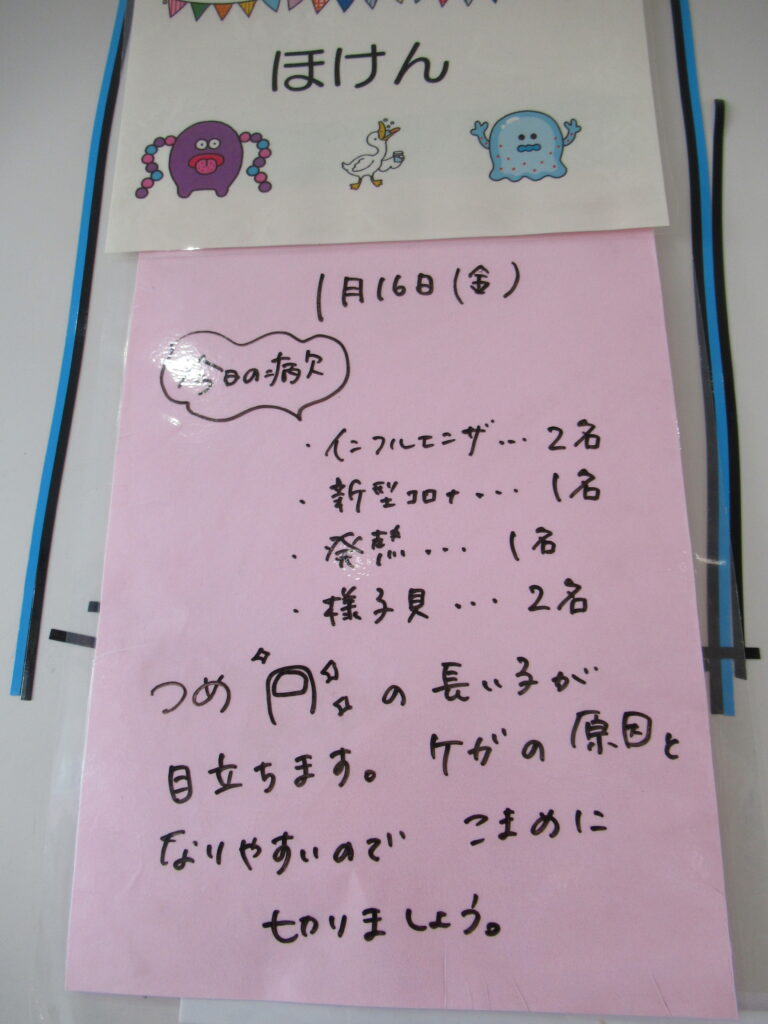 ほけん
1月16日(金)
今日の病欠
・インフルエンザ... 2名
・新型コロナ... 1名
・発熱... 1名
・様子見... 2名
つめ の 長い子が
目立ちます。 ケガの 原因と
なりやすいので こまめに
切りましょう。